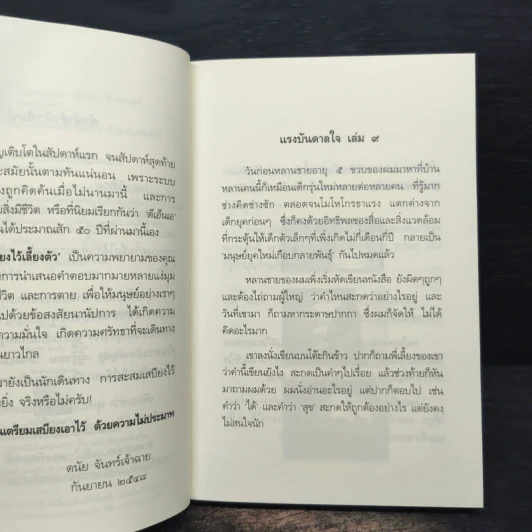 ญเติบโตในสัปดาห์แรก จนสัปดาห์สุดท้าย
ะสมัยนั้นตามทันแน่นอน เพราะระบบ
งถูกคิดค้นเมื่อไม่นานมานี้ และการ
มสิ่งมีชีวิต หรือที่นิยมเรียกกันว่า 'ดีเอ็นเอ'
นได้ประมาณสัก ๕๐ ปีที่ผ่านมานี้เอง
ยงไว้เลี้ยงตัว' เป็นความพยายามของคุณ
การนำเสนอคำตอบมากมายหลายแง่มุม
ชีวิต และการตาย เพื่อให้มนุษย์อย่างเราๆ
ไปด้วยข้อสงสัยนานัปการ ได้เกิดความ
ความมั่นใจ เกิดความศรัทธาที่จะเดินทาง
นยาวไกล
รายังเป็นนักเดินทาง การสะสมเสบียงไว้
ยิ่ง จริงหรือไม่ครับ!
เตรียมเสบียงเอาไว้ ด้วยความไม่ประมาท
ดนัย จันทร์เจ้าฉาย
กันยายน ๒๕๔๘
แรงบันดาลใจ เล่ม ๙
วันก่อนหลานชายอายุ ๕ ขวบของผมมาหาที่บ้าน
หลานคนนี้ก็เหมือนเด็กรุ่นใหม่หลายต่อหลายคน ที่รู้มาก
ช่างคิดช่างซัก ตลอดจนโมโหโกรธาแรง แตกต่างจาก
เด็กยุคก่อนๆ ซึ่งก็คงด้วยอิทธิพลของสื่อและสิ่งแวดล้อม
ที่กระตุ้นให้เด็กตัวเล็กๆที่เพิ่งเกิดไม่กี่เดือนกี่ปี กลายเป็น
'มนุษย์ยุคใหม่เกือบกลายพันธุ์' กันไปหมดแล้ว
หลานชายของผมเพิ่งเริ่มหัดเขียนหนังสือ ยังผิดๆถูกๆ
และต้องไถ่ถามผู้ใหญ่ ว่าคำไหนสะกดว่าอย่างไรอยู่ และ
วันที่เขามา ก็ถามหากระดาษปากกา ซึ่งผมก็จัดให้ ไม่ได้
คิดอะไรมาก
เขาลงนั่งเขียนบนโต๊ะกินข้าว ปากก็ถามพี่เลี้ยงของเขา
ว่าคำนี้เขียนยังไง สะกดเป็นคำๆไปเรื่อย แล้วช่วงท้ายก็หัน
มาถามผมด้วย ผมนั่งอ่านอะไรอยู่ แต่ปากก็ตอบไป เช่น
คำว่า 'ได้' และคำว่า 'สุข' สะกดให้ถูกต้องอย่างไร แต่ยังคง
ไม่สนใจนัก